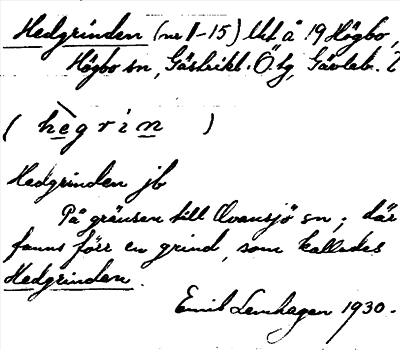 Hedgrinden (nr II-15) tkt å 19 Högbo,
Högbo sn, Gästrikl. Ö. tg, Gävleb. l
( hegrin )
Hedgrinden jb
På gränsen till Ovansjö sn; där
fanns förr en grind, som kallades
Hedgrinden.
Emil Lenhagen 1930.